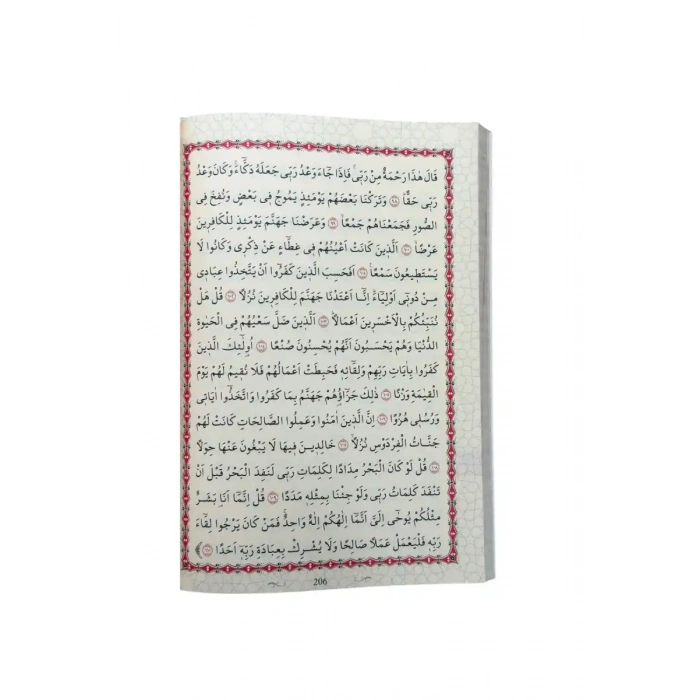 قَالَ هٰذَا رَحْمَةٌ مِنْ رَبّ۪يۚ فَاِذَا جَٓاءَ وَعْدُ رَبّ۪ي جَعَلَهُ دَكَّٓاءَۚ وَكَانَ وَعْدُ
رَبّ۪ي حَقًّاۜ ﴿٩٨﴾ وَتَرَكْنَا بَعْضَهُمْ يَوْمَئِذٍ يَمُوجُ ف۪ي بَعْضٍ وَنُفِخَ فِي
الصُّورِ فَجَمَعْنَاهُمْ جَمْعًاۙ ﴿٩٩﴾ وَعَرَضْنَا جَهَنَّمَ يَوْمَئِذٍ لِلْكَافِر۪ينَ
عَرْضًاۙ ﴿١٠٠﴾ اَلَّذ۪ينَ كَانَتْ اَعْيُنُهُمْ ف۪ي غِطَٓاءٍ عَنْ ذِكْر۪ي وَكَانُوا لَا
يَسْتَط۪يعُونَ سَمْعًا۟ ﴿١٠١﴾ اَفَحَسِبَ الَّذ۪ينَ كَفَرُٓوا اَنْ يَتَّخِذُوا عِبَاد۪ي
مِنْ دُون۪ٓي اَوْلِيَٓاءَۜ اِنَّٓا اَعْتَدْنَا جَهَنَّمَ لِلْكَافِر۪ينَ نُزُلًا ﴿١٠٢﴾ قُلْ هَلْ
نُنَبِّئُكُمْ بِالْاَخْسَر۪ينَ اَعْمَالًاۜ ﴿١٠٣﴾ اَلَّذ۪ينَ ضَلَّ سَعْيُهُمْ فِي الْحَيٰوةِ
الدُّنْيَا وَهُمْ يَحْسَبُونَ اَنَّهُمْ يُحْسِنُونَ صُنْعًا ﴿١٠٤﴾ اُو۬لٰٓئِكَ الَّذ۪ينَ
كَفَرُوا بِاٰيَاتِ رَبِّهِمْ وَلِقَٓائِه۪ فَحَبِطَتْ اَعْمَالُهُمْ فَلَا نُق۪يمُ لَهُمْ يَوْمَ
الْقِيٰمَةِ وَزْنًا ﴿١٠٥﴾ ذٰلِكَ جَزَٓاؤُ۬هُمْ جَهَنَّمُ بِمَا كَفَرُوا وَاتَّخَذُٓوا اٰيَات۪ي
وَرُسُل۪ي هُزُوًا ﴿١٠٦﴾ اِنَّ الَّذ۪ينَ اٰمَنُوا وَعَمِلُوا الصَّالِحَاتِ كَانَتْ لَهُمْ
جَنَّاتُ الْفِرْدَوْسِ نُزُلًاۙ ﴿١٠٧﴾ خَالِد۪ينَ ف۪يهَا لَا يَبْغُونَ عَنْهَا حِوَلًا
﴿١٠٨﴾ قُلْ لَوْ كَانَ الْبَحْرُ مِدَادًا لِكَلِمَاتِ رَبّ۪ي لَنَفِدَ الْبَحْرُ قَبْلَ اَنْ
تَنْفَدَ كَلِمَاتُ رَبّ۪ي وَلَوْ جِئْنَا بِمِثْلِه۪ مَدَدًا ﴿١٠٩﴾ قُلْ اِنَّمَٓا اَنَا۬ بَشَرٌ
مِثْلُكُمْ يُوحٰٓى اِلَيَّ اَنَّمَٓا اِلٰهُكُمْ اِلٰهٌ وَاحِدٌۚ فَمَنْ كَانَ يَرْجُوا لِقَٓاءَ
رَبِّه۪ فَلْيَعْمَلْ عَمَلًا صَالِحًا وَلَا يُشْرِكْ بِعِبَادَةِ رَبِّه۪ٓ اَحَدًا ﴿١١٠﴾
206